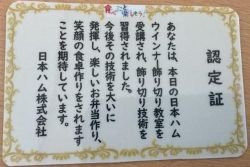 食で楽しもう!
認定証
あなたは、本日の日本ハム
ウインナー飾り切り教室を
受講され、飾り切り技術を
習得されました。
今後その技術を大いに
発揮し、楽しいお弁当作り、
笑顔の食卓作りをされます
ことを期待しています。
日本ハム株式会社